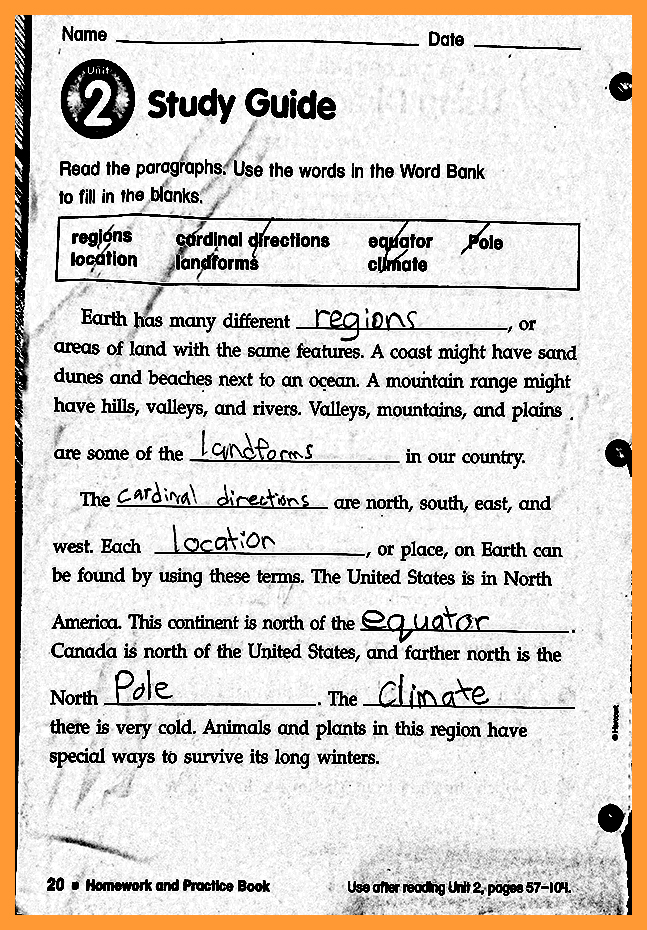 Name Date
Unit
2 Study Guide
Read the paragraphs. Use the words in the Word Bank
to fill in the blanks.
regions cardinal directions equator Pole
location landforms climate
Earth has many different regions, or
areas of land with the same features. A coast might have sand
dunes and beaches next to an ocean. A mountain range might
have hills, valleys, and rivers. Valleys, mountains, and plains
are some of the landforms in our country.
The cardinal directions are north, south, east, and
west. Each location, or place, on Earth can
be found by using these terms. The United States is in North
America. This continent is north of the equator.
Canada is north of the United States, and farther north is the
North Pole. The Climate
there is very cold. Animals and plants in this region have
special ways to survive its long winters.
© Harcourt
20 ■ Homework and Practice Book Use after reading Unit 2, pages 57–104.